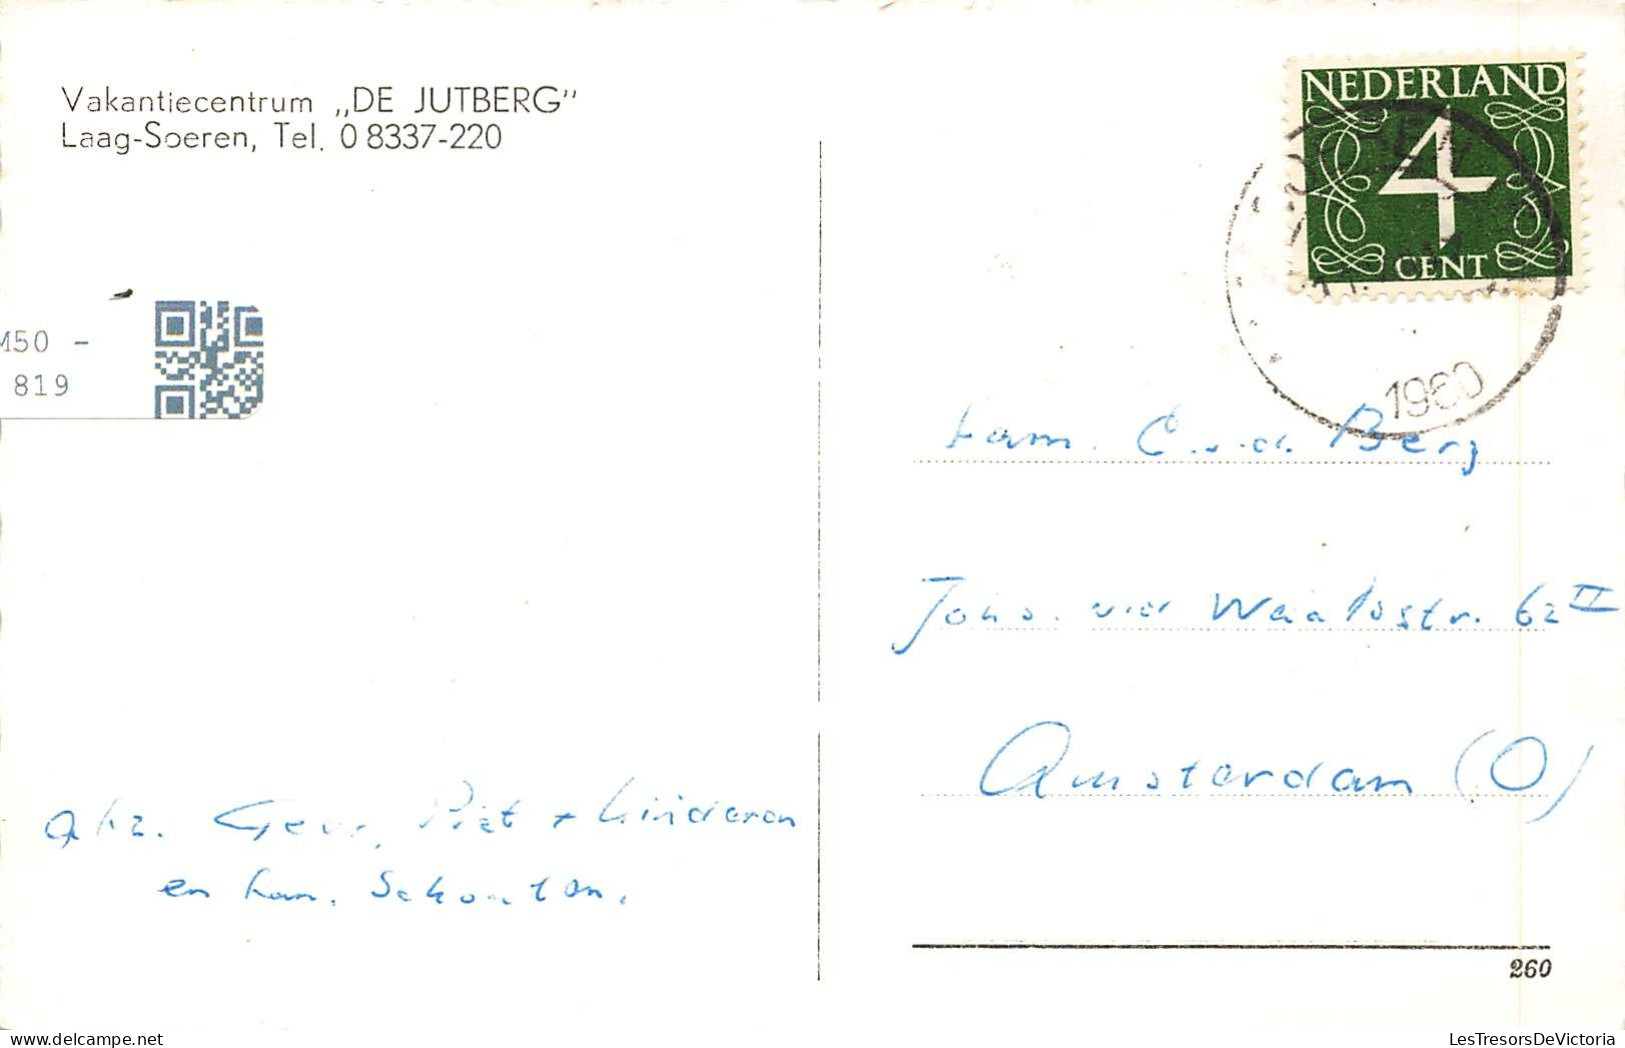 Vakantiecentrum „DE JUTBERG"
Laag-Soeren, Tel. 0 8337-220
NEDERLAND
4
CENT
1960
M50 -
819
Fam. C. v.d. Berg
Joh. v.d. Waalsstr. 62 II
Amsterdam (O)
Afz. Gevr, Piet + kinderen
en fam. Schouten.
260
LesTresorsDeVictoria